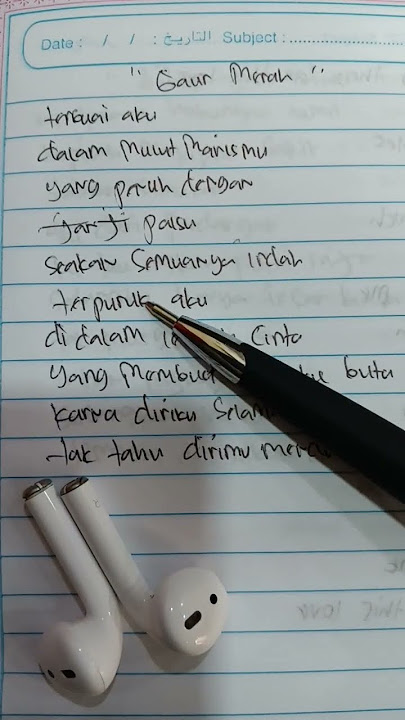 Date : / / : التاريخ Subject :
"Gaun Merah"
terbuai aku
dalam mulut manismu
yang penuh dengan
janji palsu
seakan semuanya indah
terpuruk aku
di dalam cinta
yang membua buta
karna diriku selam
tak tahu dirimu